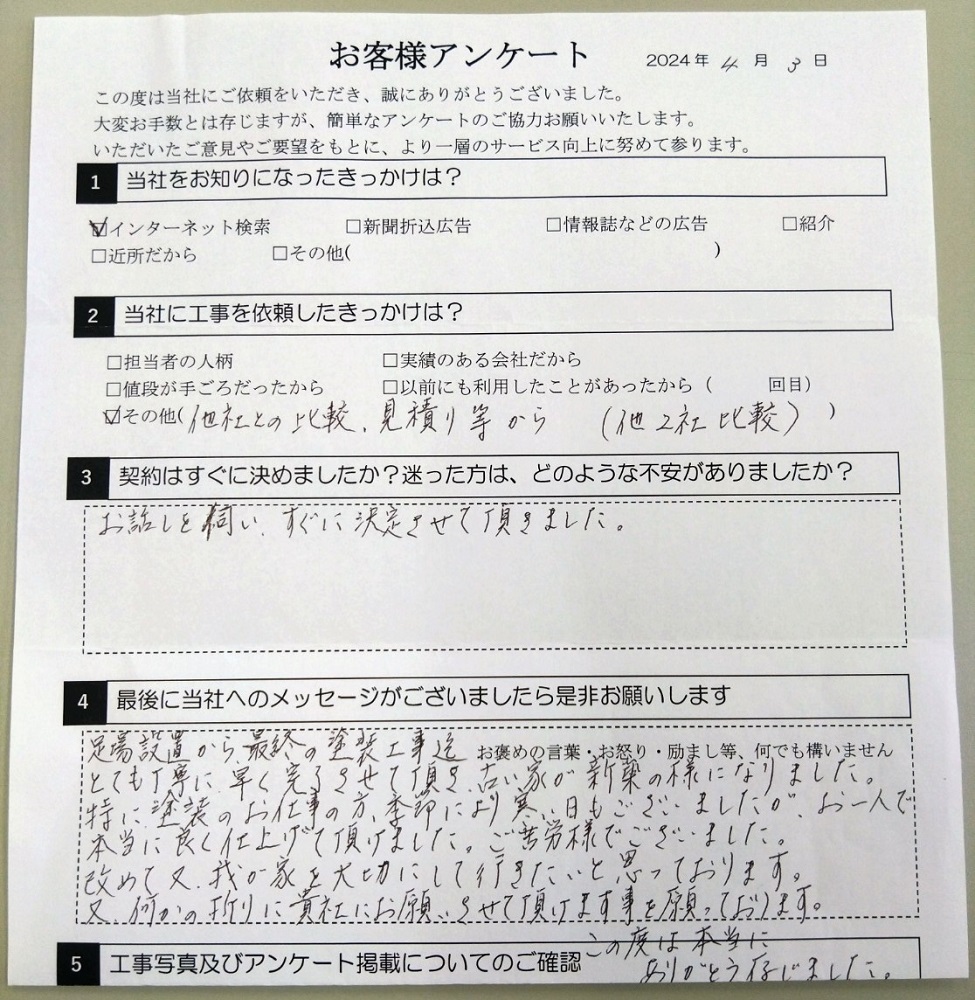 お客様アンケート 2024年 4 月 3 日
この度は当社にご依頼をいただき、誠にありがとうございました。
大変お手数とは存じますが、簡単なアンケートのご協力お願いいたします。
いただいたご意見やご要望をもとに、より一層のサービス向上に努めて参ります。
1 当社をお知りになったきっかけは?
☑インターネット検索 □新聞折込広告 □情報誌などの広告 □紹介
□近所だから □その他( )
2 当社に工事を依頼したきっかけは?
□担当者の人柄 □実績のある会社だから
□値段が手ごろだったから □以前にも利用したことがあったから ( 回目)
☑その他(他社との比較、見積り等から (他2社比較) )
3 契約はすぐに決めましたか?迷った方は、どのような不安がありましたか?
お話しを伺い、すぐに決定させて頂きました。
4 最後に当社へのメッセージがございましたら是非お願いします
足場設置から、最終の塗装工事迄 お褒めの言葉・お怒り・励まし等、何でも構いません
とても丁寧に、早く完了させて頂き、古い家が新築の様になりました。
特に、塗装のお仕事の方、季節により寒い日もございましたが、お一人で
本当に良く仕上げて頂けました。ご苦労様でございました。
改めて又、我が家を大切にして行きたいと思っております。
又、何かの折りに貴社にお願いさせて頂けます事を願っております。
この度は本当に
5 工事写真及びアンケート掲載についてのご確認
ありがとう存じました。